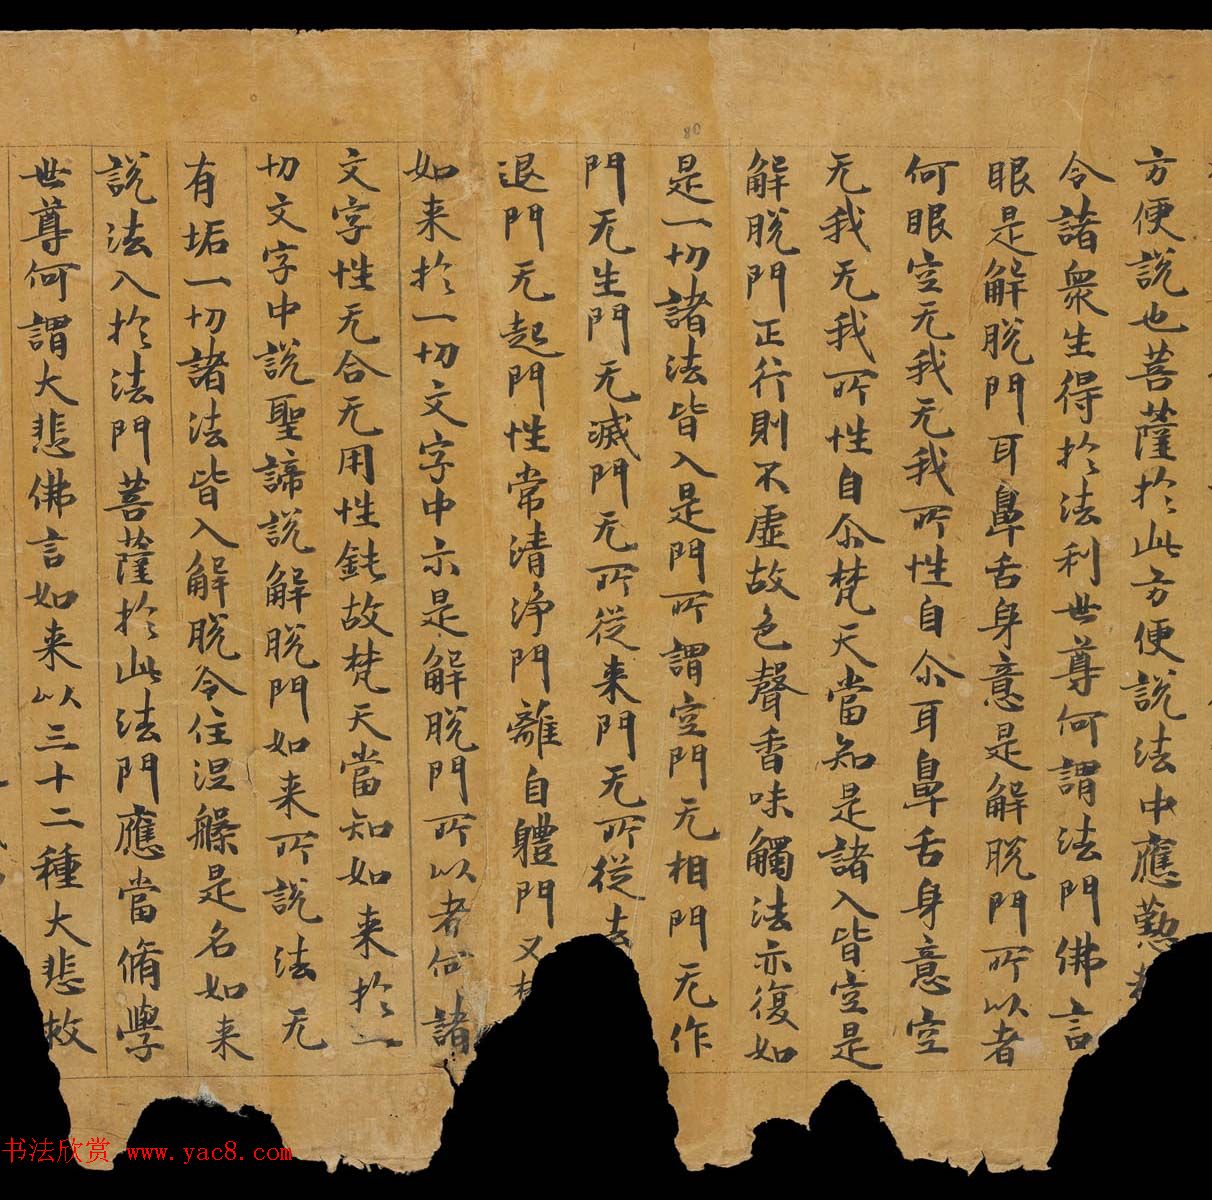 方便説也菩薩於此方便説法中應懃
令諸衆生得於法利世尊何謂法門佛言
眼是解脱門耳鼻舌身意是解脱門所以者
何眼空无我无我所性自尒耳鼻舌身意空
无我无我所性自尒梵天當知是諸入皆空是
解脱門正行則不虚故色聲香味觸法亦復如
是一切諸法皆入是門所謂空門无相門无作
門无生門无滅門无所從来門无所從去
退門无起門性常清浄門離自體門又
如来於一切文字中示是解脱門所以者何諸
文字性无合无用性鈍故梵天當知如来於一
切文字中説聖諦説解脱門如来所説法无
有垢一切諸法皆入解脱令住涅槃是名如来
説法入於法門菩薩於此法門應當脩學
世尊何謂大悲佛言如来以三十二種大悲救
书法欣赏 www.yac8.com